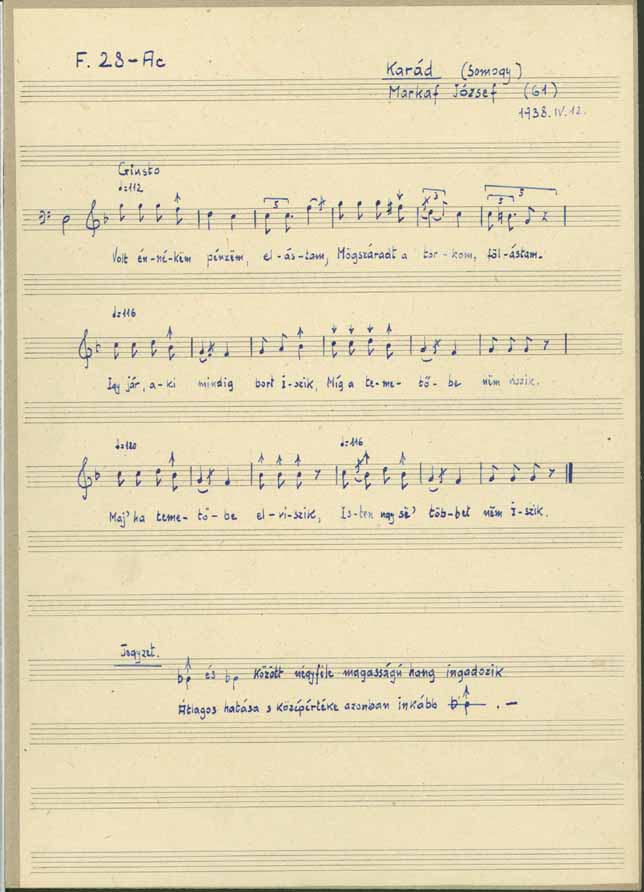 F. 28-Ac
Karád (Somogy)
Markaf József (61)
1938. IV. 12.
Giusto
♩=112
Volt én-né-kem pénzëm, el-ás-tam, Mögszáradt a tor-kom, föl-ástam.
♩=116
Igy jár, a-ki mindig bort i-szik, Míg a te-me-tő-be nëm viszik.
♩=120
♩=116
Maj' ha teme-tő-be el-vi-szik, Is-ten ugy së' töb-bet nëm i-szik.
Jegyzet.
és között négyféle magasságú hang ingadozik
Átlagos hatása s középértéke azonban inkább . –